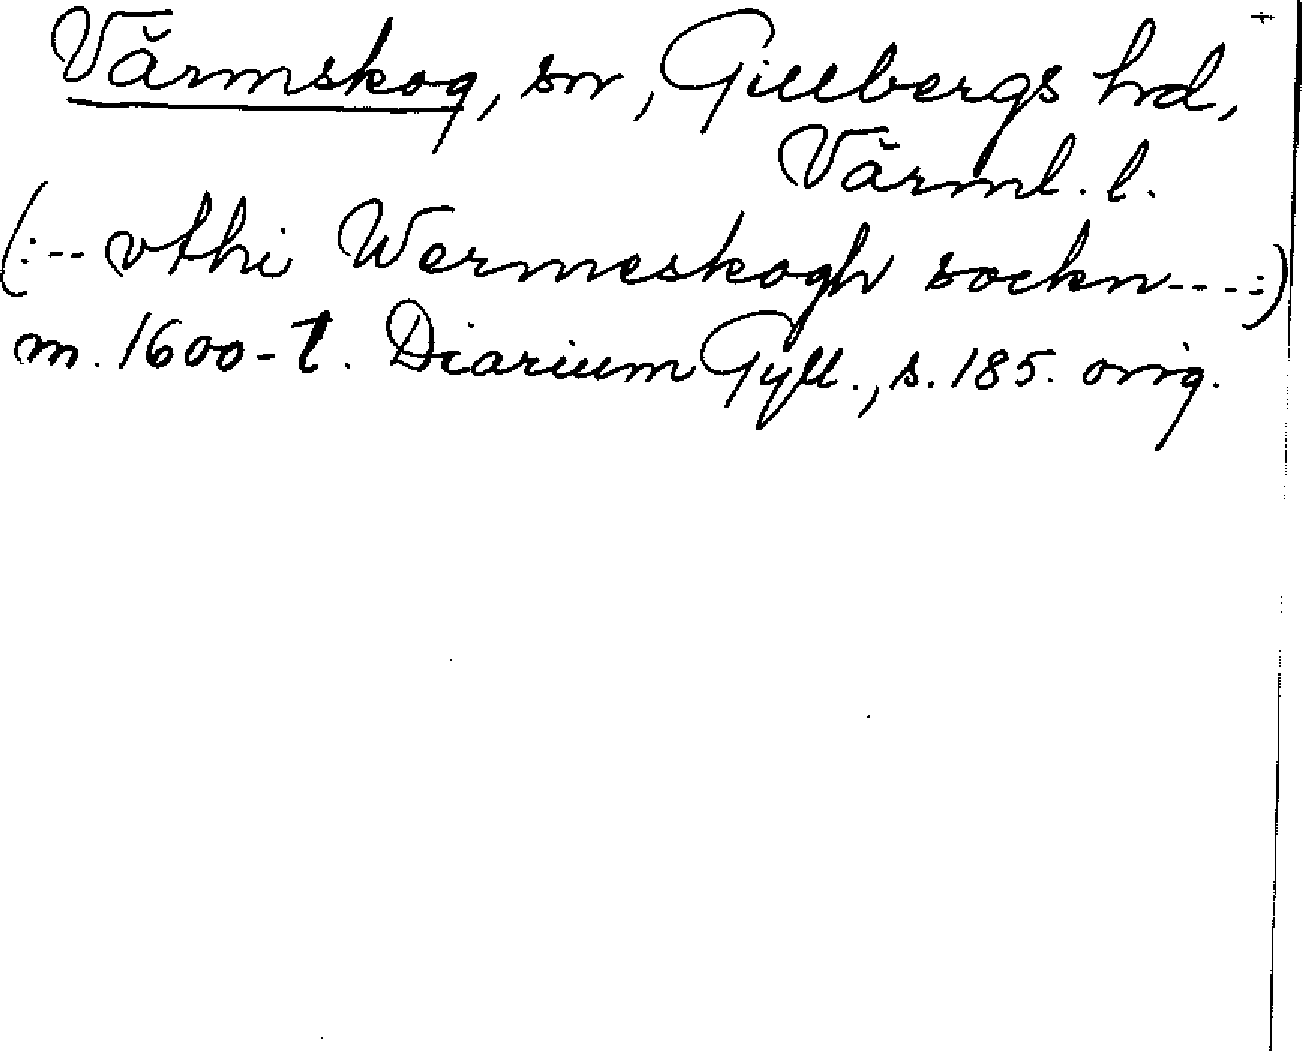 Värmskog, sn, Gillbergs hd,
Värml. l.
(:-- vthi Wermeskogh sockn---:)
m. 1600-t. Diarium Gyll., s. 185. orig.